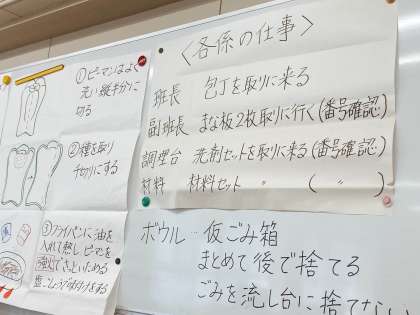 ①ピーマンはよく
洗い縦半分に
切る
②種を取り
千切りにする
③フライパンに油を
入れて熱し ピーマンを
強火でさっといためる
塩こしょうで味付けをする
〈各係の仕事〉
班長 包丁を取りに来る
副班長 まな板2枚取りに行く(番号確認)
調理台 洗剤セットを取りに来る(番号確認)
材料 材料セット 〃 ( 〃 )
ボウル…仮ごみ箱
まとめて後で捨てる
ごみを流し台に捨てない